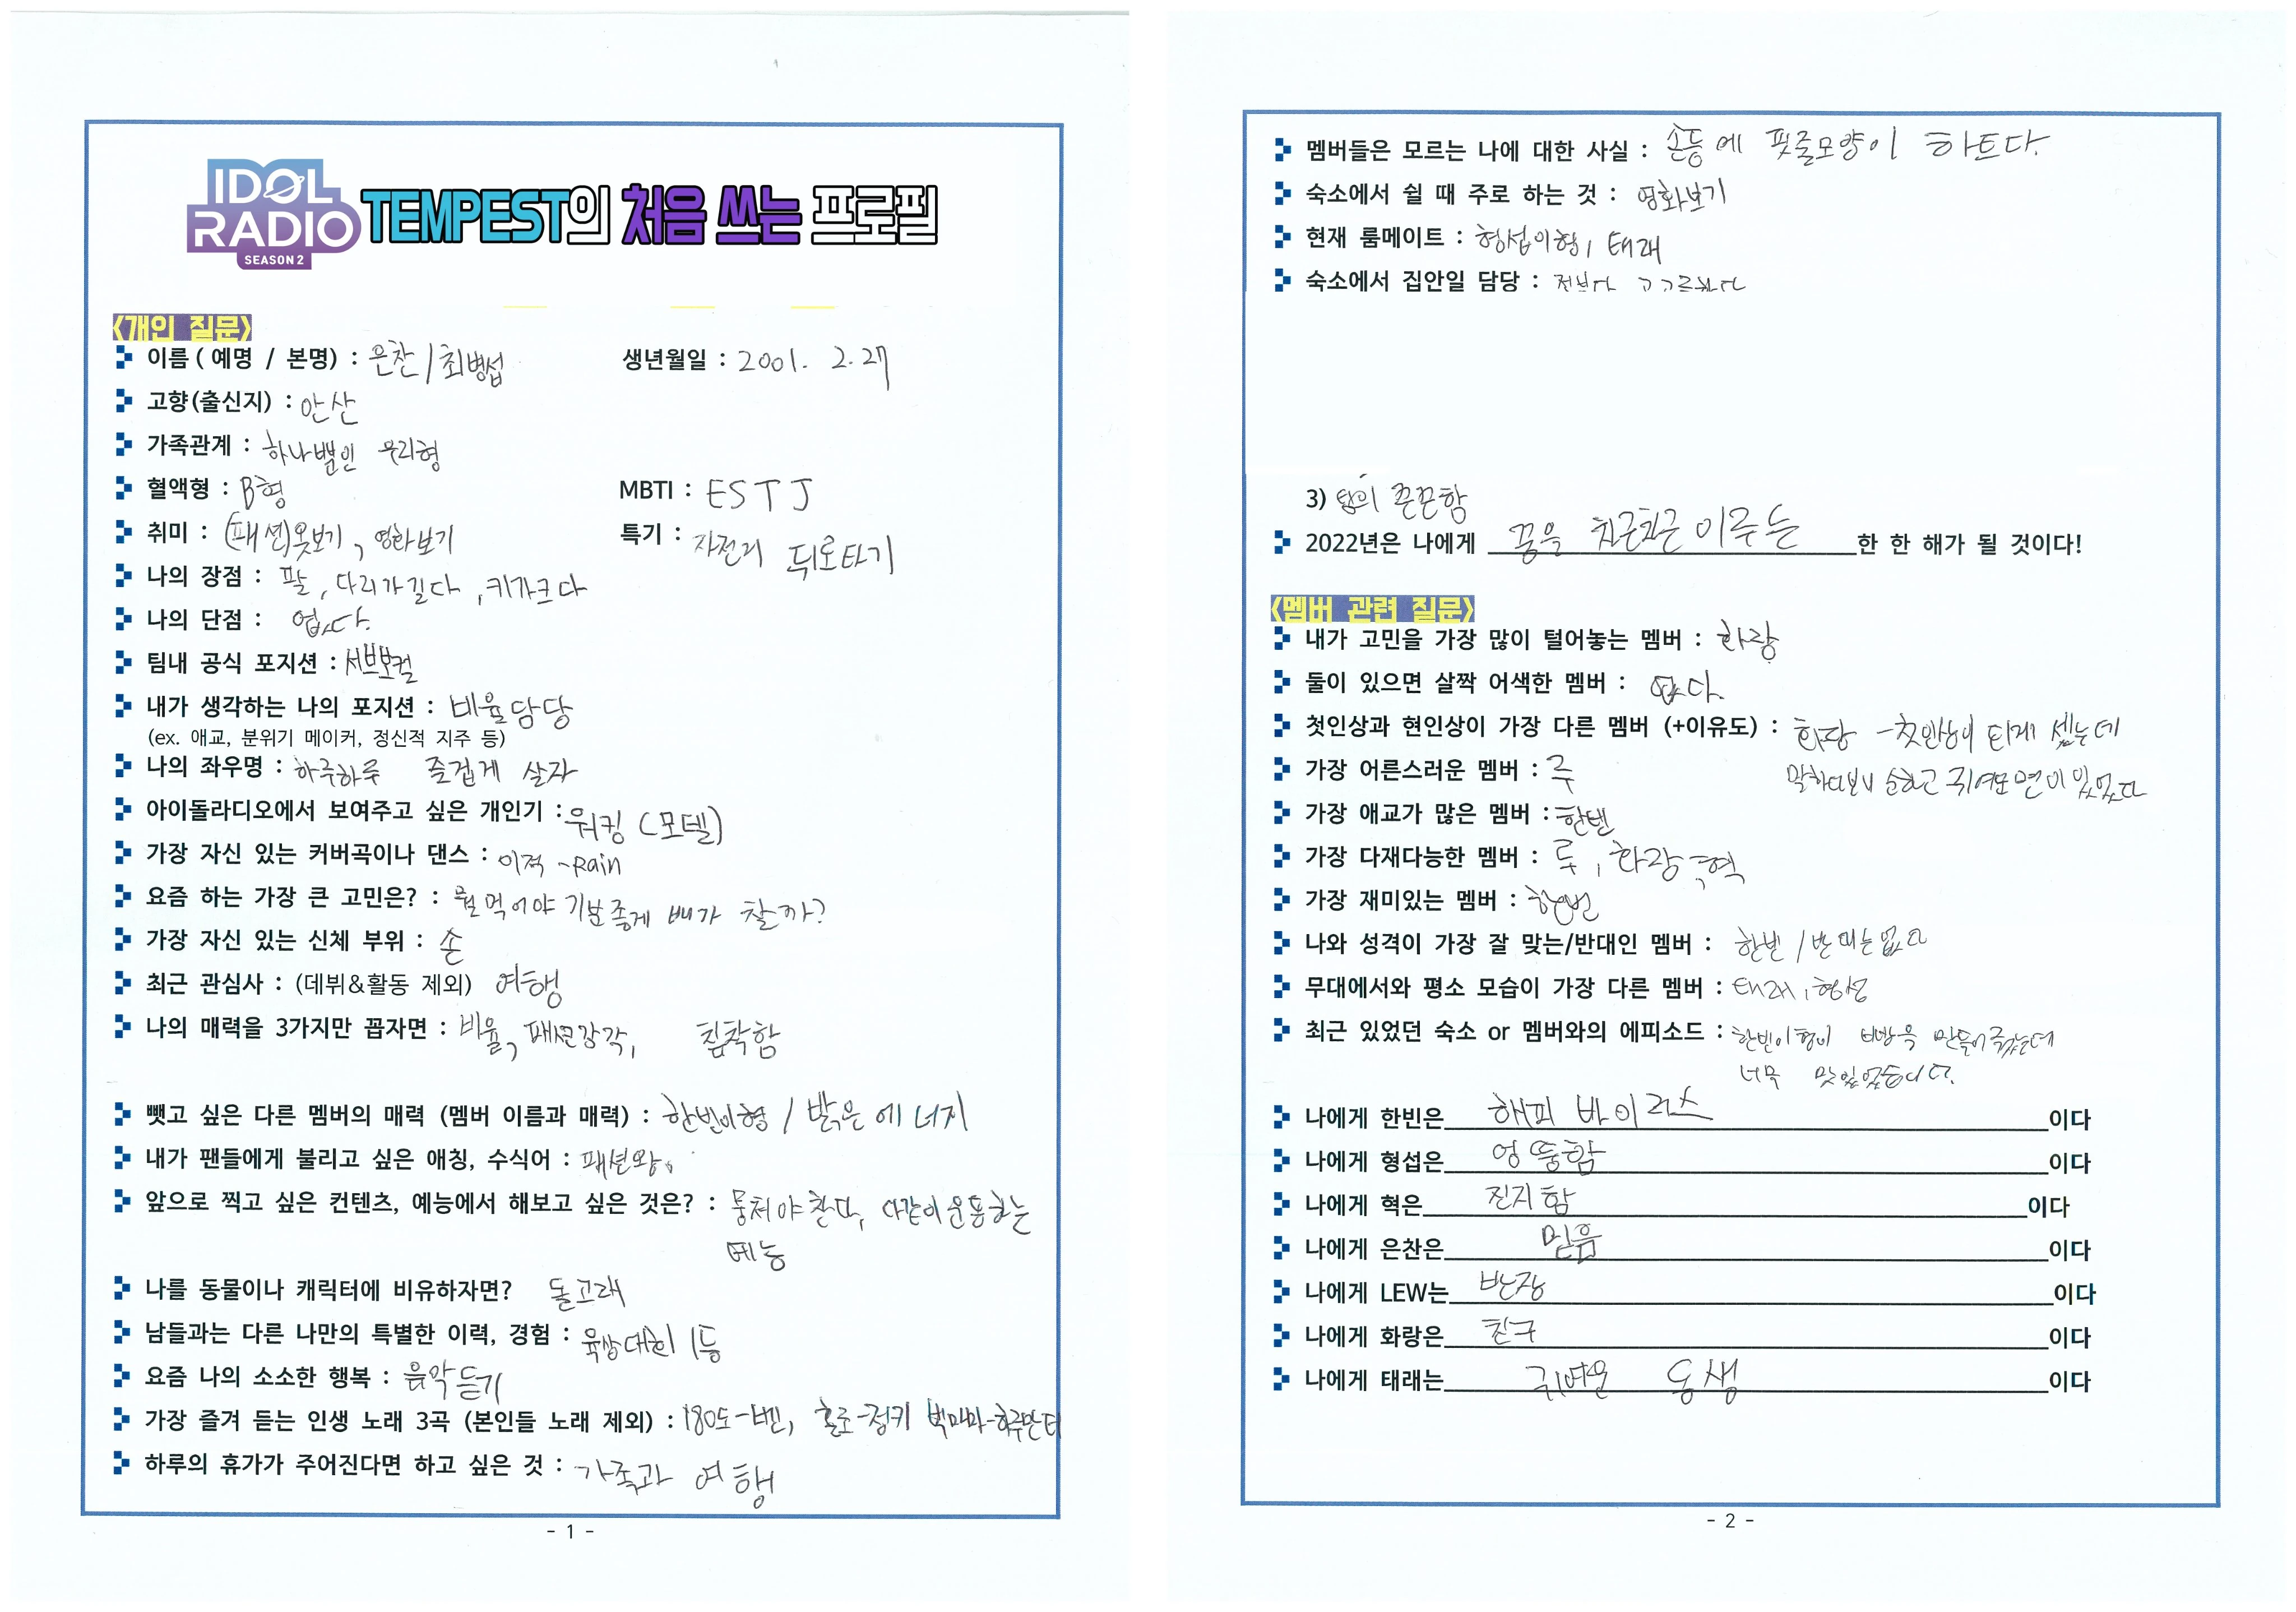 IDOL RADIO SEASON 2 TEMPEST의 처음 쓰는 프로필
<개인 질문>
이름( 예명 / 본명) : 은찬 / 최병섭 생년월일 : 2001. 2. 27
고향(출신지) : 안산
가족관계 : 하나뿐인 우리형
혈액형 : B형 MBTI : ESTJ
취미 : (패션)옷보기, 영화보기 특기 : 자전거 뒤로타기
나의 장점 : 팔, 다리가길다, 키가크다
나의 단점 : 없다.
팀내 공식 포지션 : 서브보컬
내가 생각하는 나의 포지션 : 비율담당
(ex. 애교, 분위기 메이커, 정신적 지주 등)
나의 좌우명 : 하루하루 즐겁게 살자
아이돌라디오에서 보여주고 싶은 개인기 : 워킹 (모델)
가장 자신 있는 커버곡이나 댄스 : 이적 -Rain
요즘 하는 가장 큰 고민은? : 뭘먹어야 기분좋게 배가 찰까?
가장 자신 있는 신체 부위 : 손
최근 관심사 : (데뷔&활동 제외) 여행
나의 매력을 3가지만 꼽자면 : 비율, 패션감각, 침착함
뺏고 싶은 다른 멤버의 매력 (멤버 이름과 매력) : 한빈이형 / 밝은 에너지
내가 팬들에게 불리고 싶은 애칭, 수식어 : 패션왕.
앞으로 찍고 싶은 컨텐츠, 예능에서 해보고 싶은 것은? : 뭉쳐야찬다, 다같이운동하는
예능
나를 동물이나 캐릭터에 비유하자면? 돌고래
남들과는 다른 나만의 특별한 이력, 경험 : 육상대회 1등
요즘 나의 소소한 행복 : 음악듣기
가장 즐겨 듣는 인생 노래 3곡 (본인들 노래 제외) : 180도-벤, 홀로-정키 빅마마-하루만더
하루의 휴가가 주어진다면 하고 싶은 것 : 가족과 여행
- 1 -
멤버들은 모르는 나에 대한 사실 : 손등에 핏줄모양이 하트다.
숙소에서 쉴 때 주로 하는 것 : 영화보기
현재 룸메이트 : 형섭이형, 태래
숙소에서 집안일 담당 :
3) 팀의 끈끈함
2022년은 나에게 꿈을 차근차근 이루는 한 한 해가 될 것이다!
<멤버 관련 질문>
내가 고민을 가장 많이 털어놓는 멤버 : 화랑
둘이 있으면 살짝 어색한 멤버 : 없다.
첫인상과 현인상이 가장 다른 멤버 (+이유도) : 화랑 -첫인상이 되게 셌는데
말하다보니 순하고 귀여운면이 있었다
가장 어른스러운 멤버 : 루
가장 애교가 많은 멤버 : 한빈
가장 다재다능한 멤버 : 루, 화랑, 혁
가장 재미있는 멤버 : 한빈
나와 성격이 가장 잘 맞는/반대인 멤버 : 한빈 / 반대는없다
무대에서와 평소 모습이 가장 다른 멤버 : 태래, 형섭
최근 있었던 숙소 or 멤버와의 에피소드 : 한빈이형이 비빔면을 만들어줬는데
너무 맛있었습니다.
나에게 한빈은 해피 바이러스 이다
나에게 형섭은 엉뚱함 이다
나에게 혁은 진지함 이다
나에게 은찬은 믿음 이다
나에게 LEW는 반장 이다
나에게 화랑은 친구 이다
나에게 태래는 귀여운 동생 이다
- 2 -